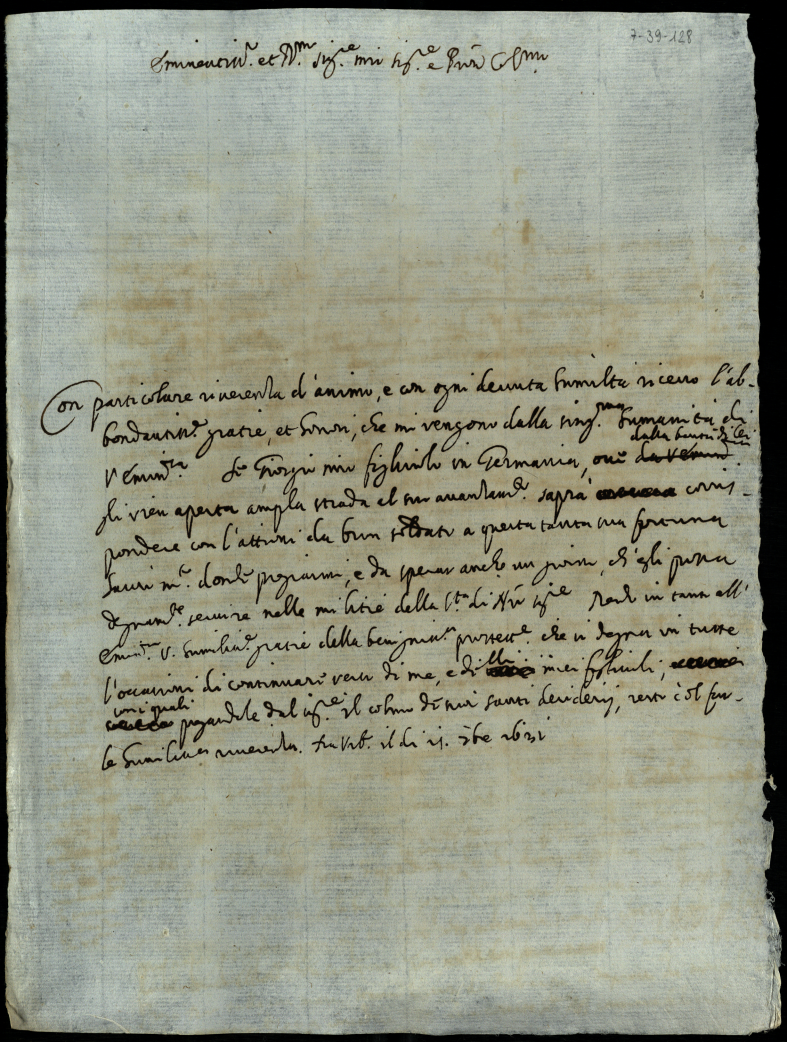 7-39-128
Eminentiss.r et R.mo Sig.re mio Sig.re e Pron Col.mo
Con particolare riverenza d'animo, e con ogni devuta humiltà ricevo l'ab-
bondantiss.e gratie, et honori, che mi vengono dalla sing.ma humanità di
V. Emin.za Se Giorgio mio figliuolo in Germania, ove
dalla bontà di lei
gli vien aperta ampla strada al suo avanzam.to saprà corris-
pondere con l'attioni da buon soldato a questa tanta sua fortuna
havrò m.to donde pregiarmi, e da sperar anche un giorno, ch'egli possa
degnam.te servire nelle militie della S.tà di N.ro Sig.re Rendo in tanto all'
Emin.za V. humiliss.e gratie della benigniss.a protett.e che si degna in tutte
l'occasioni di continuare verso di me, e di miei figliuoli,
con i quali
pregandole dal Sig.re il colmo de suoi santi desiderij, resto col far-
le humiliss.a riverenza. Di 1631